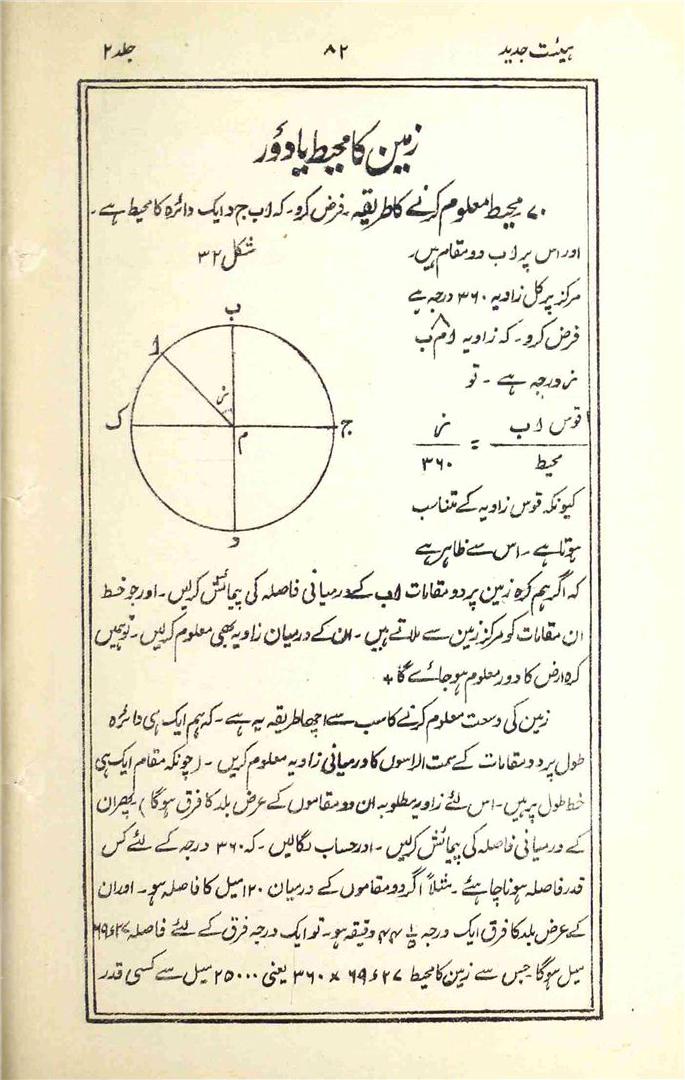 ہیئت جدید ۸۲ جلد ۲
زمین کا محیط یا دَور
۷۰ محیط معلوم کرنے کا طریقہ۔ فرض کرو۔ کہ اب ج د ایک دائرہ کا محیط ہے۔
اور اس پر ا ب دو مقام ہیں۔
شکل ۳۲
مرکز پر کل زاویہ ۳۶۰ درجہ ہے
فرض کرو۔ کہ زاویہ ا م ب
ن درجہ ہے۔ تو
قوس ا ب / محیط = ن / ۳۶۰
ب
ا
ن
ک
م
ج
د
کیونکہ قوس زاویہ کے متناسب
ہوتا ہے۔ اس سے ظاہر ہے
کہ اگر ہم کرہ زمین پر دو مقامات اب کے درمیانی فاصلہ کی پیمائش کرلیں۔ اور جو خط
ان مقامات کو مرکز زمین سے ملاتے ہیں۔ ان کے درمیان زاویہ بھی معلوم کرلیں۔ تو ہمیں
کرہ ارض کا دور معلوم ہو جائے گا +
زمین کی وسعت معلوم کرنے کا سب سے اچھا طریقہ یہ ہے۔ کہ ہم ایک ہی دائرہ
طول پر دو مقامات کے سمت الراسوں کا درمیانی زاویہ معلوم کریں۔ (چونکہ مقام ایک ہی
خط طول پر ہیں۔ اس لئے زاویہ مطلوبہ ان دو مقاموں کے عرض بلد کا فرق ہوگا) پھر ان
کے درمیانی فاصلہ کی پیمائش کرلیں۔ اور حساب لگالیں۔ کہ ۳۶۰ درجہ کے لئے کس
قدر فاصلہ ہونا چاہئے۔ مثلاً اگر دو مقاموں کے درمیان ۱۲۰ میل کا فاصلہ ہو۔ اور ان
کے عرض بلد کا فرق ایک درجہ دقیقہ ہو۔ تو ایک درجہ فرق کے لئے فاصلہ ۶۹ء۲۷
میل ہوگا جس سے زمین کا محیط ۶۹ء۲۷ × ۳۶۰ یعنی ۲۵۰۰۰ میل سے کسی قدر